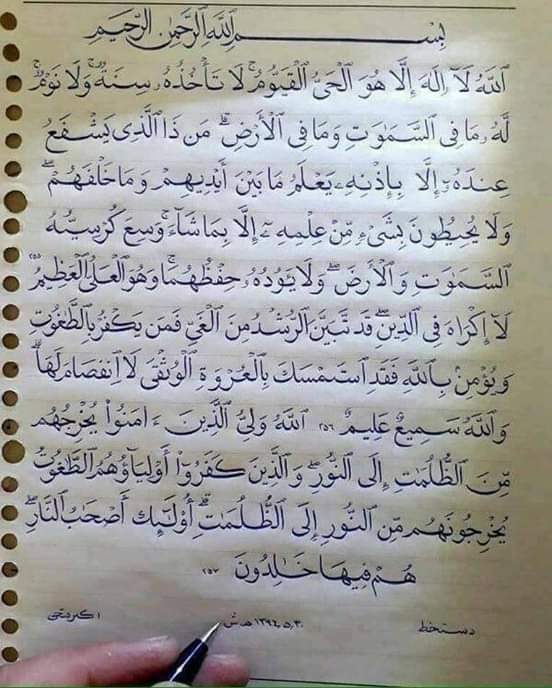 بِسْمِ ٱللَّهِ ٱلرَّحْمَٰنِ ٱلرَّحِيمِ
ٱللَّهُ لَآ إِلَٰهَ إِلَّا هُوَ ٱلْحَيُّ ٱلْقَيُّومُ ۚ لَا تَأْخُذُهُۥ سِنَةٌ وَلَا نَوْمٌ ۚ
لَّهُۥ مَا فِى ٱلسَّمَٰوَٰتِ وَمَا فِى ٱلْأَرْضِ ۗ مَن ذَا ٱلَّذِى يَشْفَعُ
عِندَهُۥٓ إِلَّا بِإِذْنِهِۦ ۚ يَعْلَمُ مَا بَيْنَ أَيْدِيهِمْ وَمَا خَلْفَهُمْ ۖ
وَلَا يُحِيطُونَ بِشَىْءٍ مِّنْ عِلْمِهِۦٓ إِلَّا بِمَا شَآءَ ۚ وَسِعَ كُرْسِيُّهُ
ٱلسَّمَٰوَٰتِ وَٱلْأَرْضَ ۖ وَلَا يَـُٔودُهُۥ حِفْظُهُمَا ۚ وَهُوَ ٱلْعَلِىُّ ٱلْعَظِيمُ ٢٥٥
لَآ إِكْرَاهَ فِى ٱلدِّينِ ۖ قَد تَّبَيَّنَ ٱلرُّشْدُ مِنَ ٱلْغَىِّ ۚ فَمَن يَكْفُرْ بِٱلطَّٰغُوتِ
وَيُؤْمِنۢ بِٱللَّهِ فَقَدِ ٱسْتَمْسَكَ بِٱلْعُرْوَةِ ٱلْوُثْقَىٰ لَا ٱنفِصَامَ لَهَا ۗ
وَٱللَّهُ سَمِيعٌ عَلِيمٌ ٢٥٦ ٱللَّهُ وَلِىُّ ٱلَّذِينَ ءَامَنُوا۟ يُخْرِجُهُم
مِّنَ ٱلظُّلُمَٰتِ إِلَى ٱلنُّورِ ۖ وَٱلَّذِينَ كَفَرُوٓا۟ أَوْلِيَآؤُهُمُ ٱلطَّٰغُوتُ
يُخْرِجُونَهُم مِّنَ ٱلنُّورِ إِلَى ٱلظُّلُمَٰتِ ۗ أُو۟لَٰٓئِكَ أَصْحَٰبُ ٱلنَّارِ ۖ
هُمْ فِيهَا خَٰلِدُونَ ٢٥٧
دستخط ١٣٩٤,٥,٣٠ هـ ش